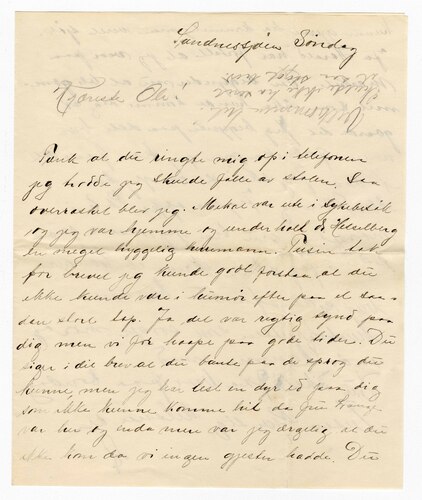 Sandnessjøen Søndag
Kjæreste Ole!
Tænk at du ringte mig op i telefonen
jeg trodde jeg skulde falle av stolen. Saa
overrasket blev jeg. Merkel var ute i sykebesøk
og jeg var hjemme og underholdt dr Heselberg
en meget hyggelig huusmann. Tusen tak
for brevet jeg kunde godt forstaa at du
ikke kunde være i humør efter paa et saa-
dan stort tap. Ja det var rigtig synd paa
dig men vi før haape paa gode tider. Du
sier i dit brev at du bante paa de sprog du
kunne, men jeg har lest en dyr ed paa dig
som ikke kunne komme hit da fru Lange
var her og enda mere var jeg ærgelig at du
ikke kom da vi ingen gjester hadde. Du